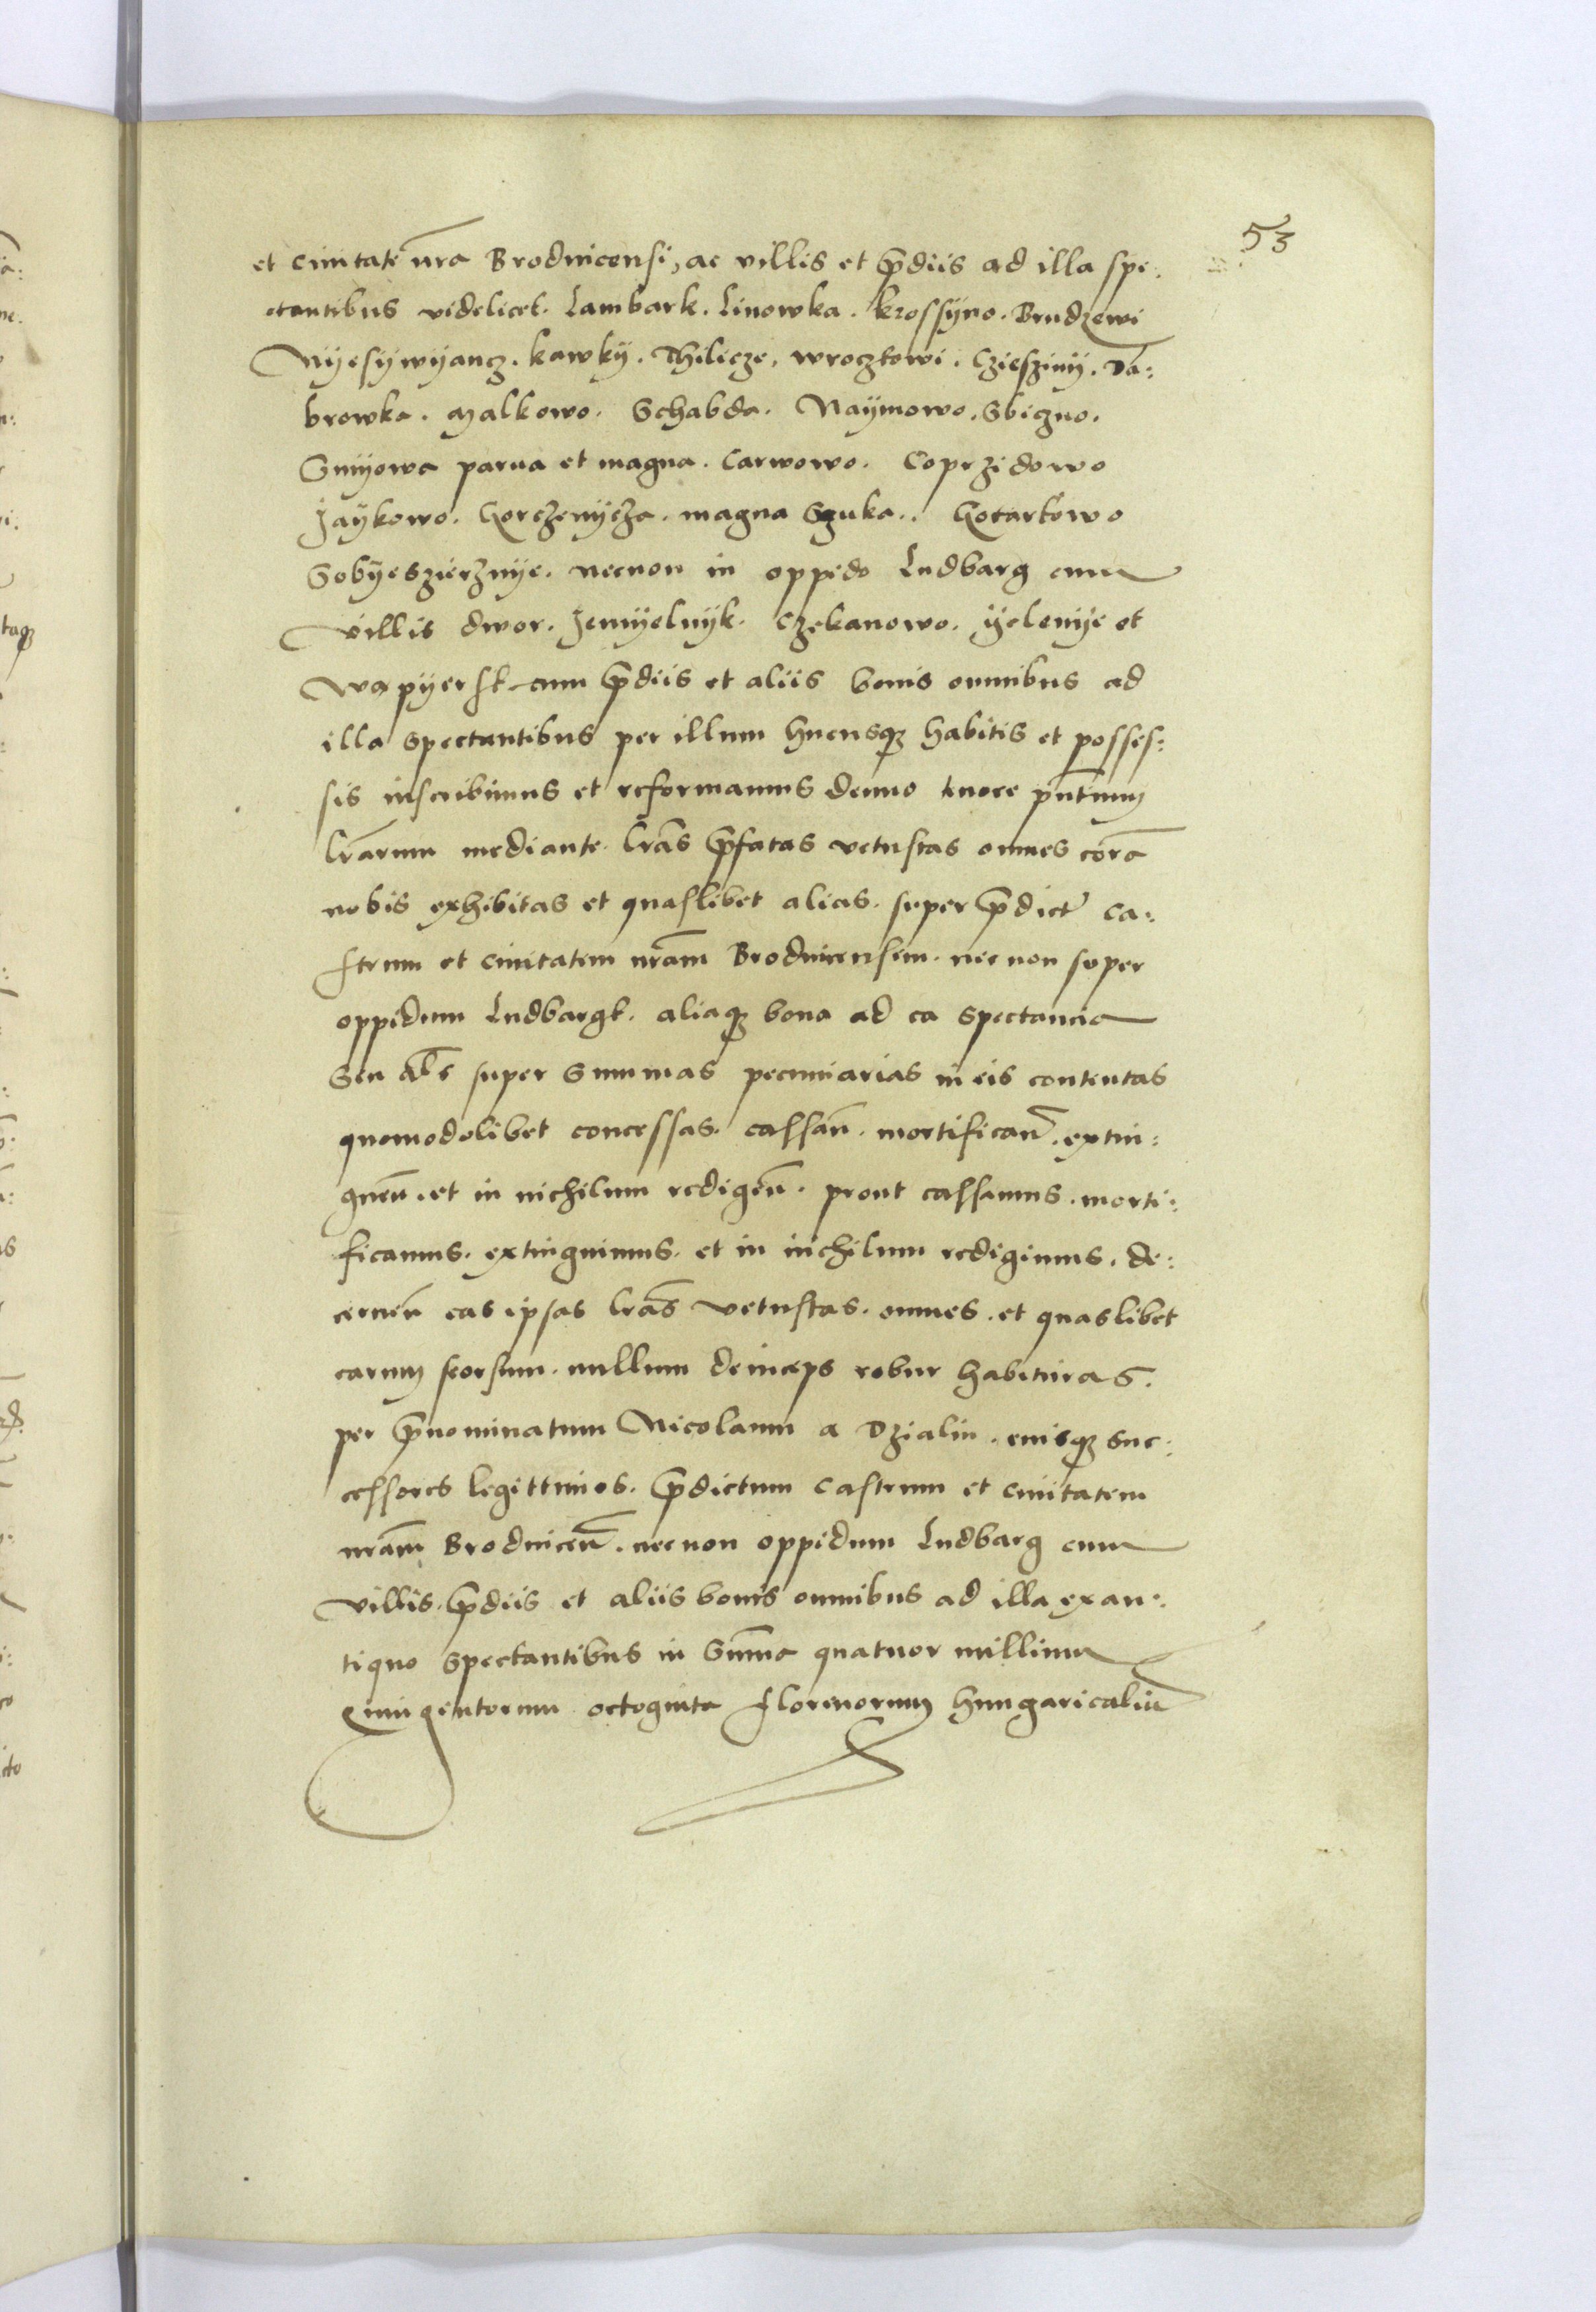 53
et ciuitate nra Brodnicensi, ac villis et prediis ad illa spe:
ctantibus videlicet. Lambark. Linowka. Krossyno. Brudzewi
Nyesywyancz. kawky. Thilicze, wroczkowi. Czieszinÿ. Da:
browka. Malkowo. Schabda. Naÿmowo. Sbiczno.
Gnÿowa parua et magna. Carwowo. Coprzidowo
Jaÿkowo. Gorczenÿcza. magna Szuka.. Gotartowo
Sobÿeszierznÿe. necnon in oppido Ludbarg cum
villis dwor. Jemÿelnÿk. Czekanowo. ÿelenÿe et
Wapÿersk cum prediis et aliis bonis omnibus ad
illa spectantibus per illum hucusque habitis et posses:
sis inscribimus et reformamus denuo tenore pntium
lrarum mediante. lras prefatas vetustas omnes cora
nobis exhibitas et quaslibet alias. super predict ca:
strum et ciuitatem nram Brodnicensem. nec non super
oppidum Ludbargk. aliaque bona ad ea spectancia
Seu als super summas pecuniarias in eis contentas
quomodolibet concessas. cassan. mortifican. extin:
guen. et in nichilum redigen. prout cassamus. morti:
ficamus. extinguimus. et in nichilum redigimus. de:
cernen eas ipsas lras vetustas. omnes. et quaslibet
earum seorsum. nullum deinceps robur habituras.
per prenominatum Nicolaum a Dzialin. eiusque suc:
cessores legittimos. predictum castrum et ciuitatem
nram Brodnicen. necnon oppidum Ludbarg cum
villis. prediis et aliis bonis omnibus ad illa ex an:
tiquo spectantibus in Summa quatuor millium
quingentorum octoginta florenorum hungaricaliu